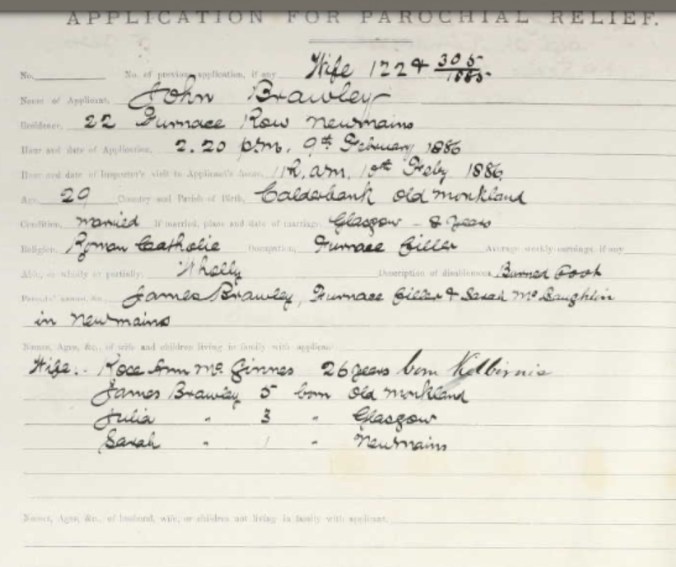 APPLICATION FOR PAROCHIAL RELIEF.
No. No. of previous application, if any Wife 1224 305/1885
Name of Applicant, John Brawley
Residence, 22 Furnace Row Newmains
Hour and date of Application, 2.20 p.m. 9th February 1886
Hour and date of Inspector's visit to Applicant's house, 11h. a.m. 10th Feby 1886
Age, 29 Country and Parish of Birth, Calderbank Old Monkland
Condition, Married If married, place and date of marriage, Glasgow - 8 years
Religion, Roman Catholic Occupation, Furnace Filler Average weekly earnings, if any
Able, or wholly or partially, Wholly Description of disablement, Burned Foot
Parents' names, &c., James Brawley, Furnace Filler & Sarah McLaughlin
in Newmains
Names, Ages, &c., of wife and children living in family with applicant
Wife:- Rose Ann McGinnes 26 years born Kilbirnie
James Brawley 5 born Old Monkland
Julia " 3 " Glasgow
Sarah " 1 " Newmains
Names, Ages, &c., of husband, wife, or children not living in family with applicant.